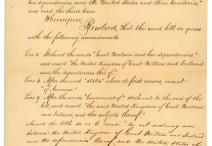 her dependencies, and the United States and their territories,"
was read the third time
Whereupon
Resolved, That the said bill do pass
with the following amendments
Line 3. Strike out the words "Great Britain and her dependencies,"
and insert the United Kingdom of Great Britain and Ireland
and the dependencies thereof
Line 5. After the word "State" where it first occurs, insert
of America
Line 9. After the word "commenced" strike out to the end of the
bill and insert the said United Kingdom of Great Britain
and Ireland, and the subjects thereof
Amend the title so as to read An act declaring war
between the United Kingdom of Great Britain and Ireland
and the dependencies thereof, and the United States of